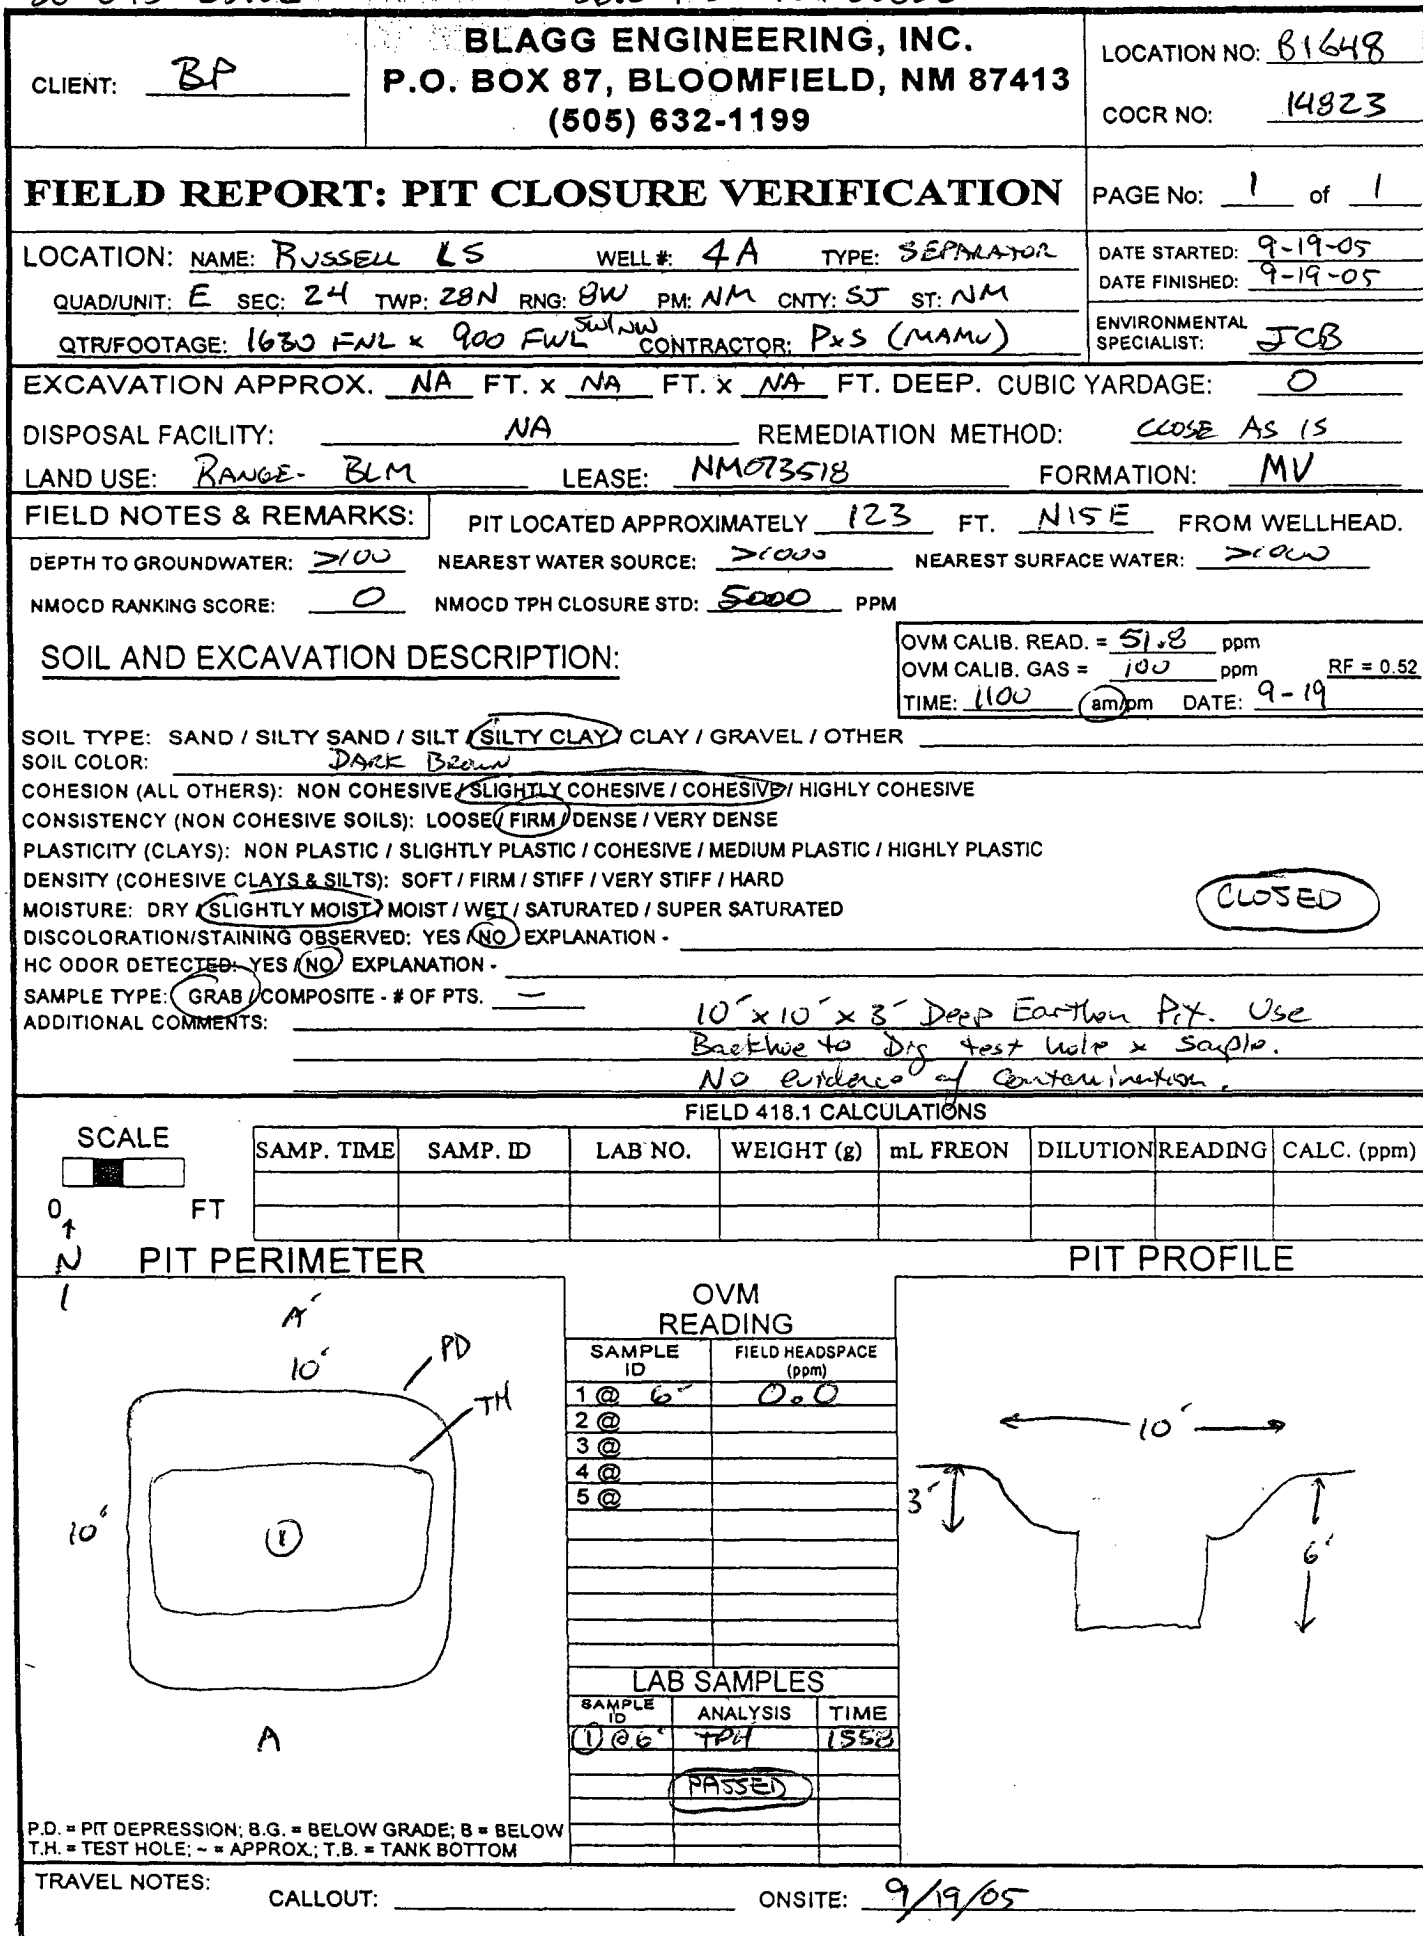 BLAGG ENGINEERING, INC.
P.O. BOX 87, BLOOMFIELD, NM 87413
(505) 632-1199
CLIENT: BP
LOCATION NO: B1648
COCR NO: 14823
FIELD REPORT: PIT CLOSURE VERIFICATION
PAGE No: 1 of 1
LOCATION: NAME: RUSSELL LS WELL #: 4A TYPE: SEPARATOR
QUAD/UNIT: E SEC: 24 TWP: 28N RNG: 8W PM: NM CNTY: SJ ST: NM
QTR/FOOTAGE: 1630 FNL x 900 FWL SW/NW CONTRACTOR: P&S (MAMU)
DATE STARTED: 9-19-05
DATE FINISHED: 9-19-05
ENVIRONMENTAL
SPECIALIST: JCB
EXCAVATION APPROX. NA FT. x NA FT. x NA FT. DEEP. CUBIC YARDAGE: 0
DISPOSAL FACILITY: NA REMEDIATION METHOD: CLOSE AS IS
LAND USE: RANGE - BLM LEASE: NM073518 FORMATION: MV
FIELD NOTES & REMARKS: PIT LOCATED APPROXIMATELY 123 FT. N15E FROM WELLHEAD.
DEPTH TO GROUNDWATER: >100 NEAREST WATER SOURCE: >1000 NEAREST SURFACE WATER: >1000
NMOCD RANKING SCORE: 0 NMOCD TPH CLOSURE STD: 5000 PPM
SOIL AND EXCAVATION DESCRIPTION:
OVM CALIB. READ. = 51.8 ppm
OVM CALIB. GAS = 100 ppm RF = 0.52
TIME: 1100 am/pm DATE: 9-19
SOIL TYPE: SAND / SILTY SAND / SILT / SILTY CLAY / CLAY / GRAVEL / OTHER
SOIL COLOR: DARK BROWN
COHESION (ALL OTHERS): NON COHESIVE / SLIGHTLY COHESIVE / COHESIVE / HIGHLY COHESIVE
CONSISTENCY (NON COHESIVE SOILS): LOOSE / FIRM / DENSE / VERY DENSE
PLASTICITY (CLAYS): NON PLASTIC / SLIGHTLY PLASTIC / COHESIVE / MEDIUM PLASTIC / HIGHLY PLASTIC
DENSITY (COHESIVE CLAYS & SILTS): SOFT / FIRM / STIFF / VERY STIFF / HARD
MOISTURE: DRY / SLIGHTLY MOIST / MOIST / WET / SATURATED / SUPER SATURATED
CLOSED
DISCOLORATION/STAINING OBSERVED: YES / NO EXPLANATION -
HC ODOR DETECTED: YES / NO EXPLANATION -
SAMPLE TYPE: GRAB / COMPOSITE - # OF PTS. —
ADDITIONAL COMMENTS: 10' x 10' x 3' Deep Earthen Pit. Use
Backhoe to Dig test hole & sample.
No evidence of contamination.
FIELD 418.1 CALCULATIONS
SCALE
0 FT
SAMP. TIME SAMP. ID LAB NO. WEIGHT (g) mL FREON DILUTION READING CALC. (ppm)
N
PIT PERIMETER
PIT PROFILE
A'
10'
PD
TH
10'
1
A
OVM
READING
SAMPLE ID FIELD HEADSPACE (ppm)
1 @ 6' 0.0
2 @
3 @
4 @
5 @
10'
3'
6'
LAB SAMPLES
SAMPLE ID ANALYSIS TIME
1 @ 6' TPH 1558
PASSED
P.D. = PIT DEPRESSION; B.G. = BELOW GRADE; B = BELOW
T.H. = TEST HOLE; ~ = APPROX.; T.B. = TANK BOTTOM
TRAVEL NOTES: CALLOUT: ONSITE: 9/19/05